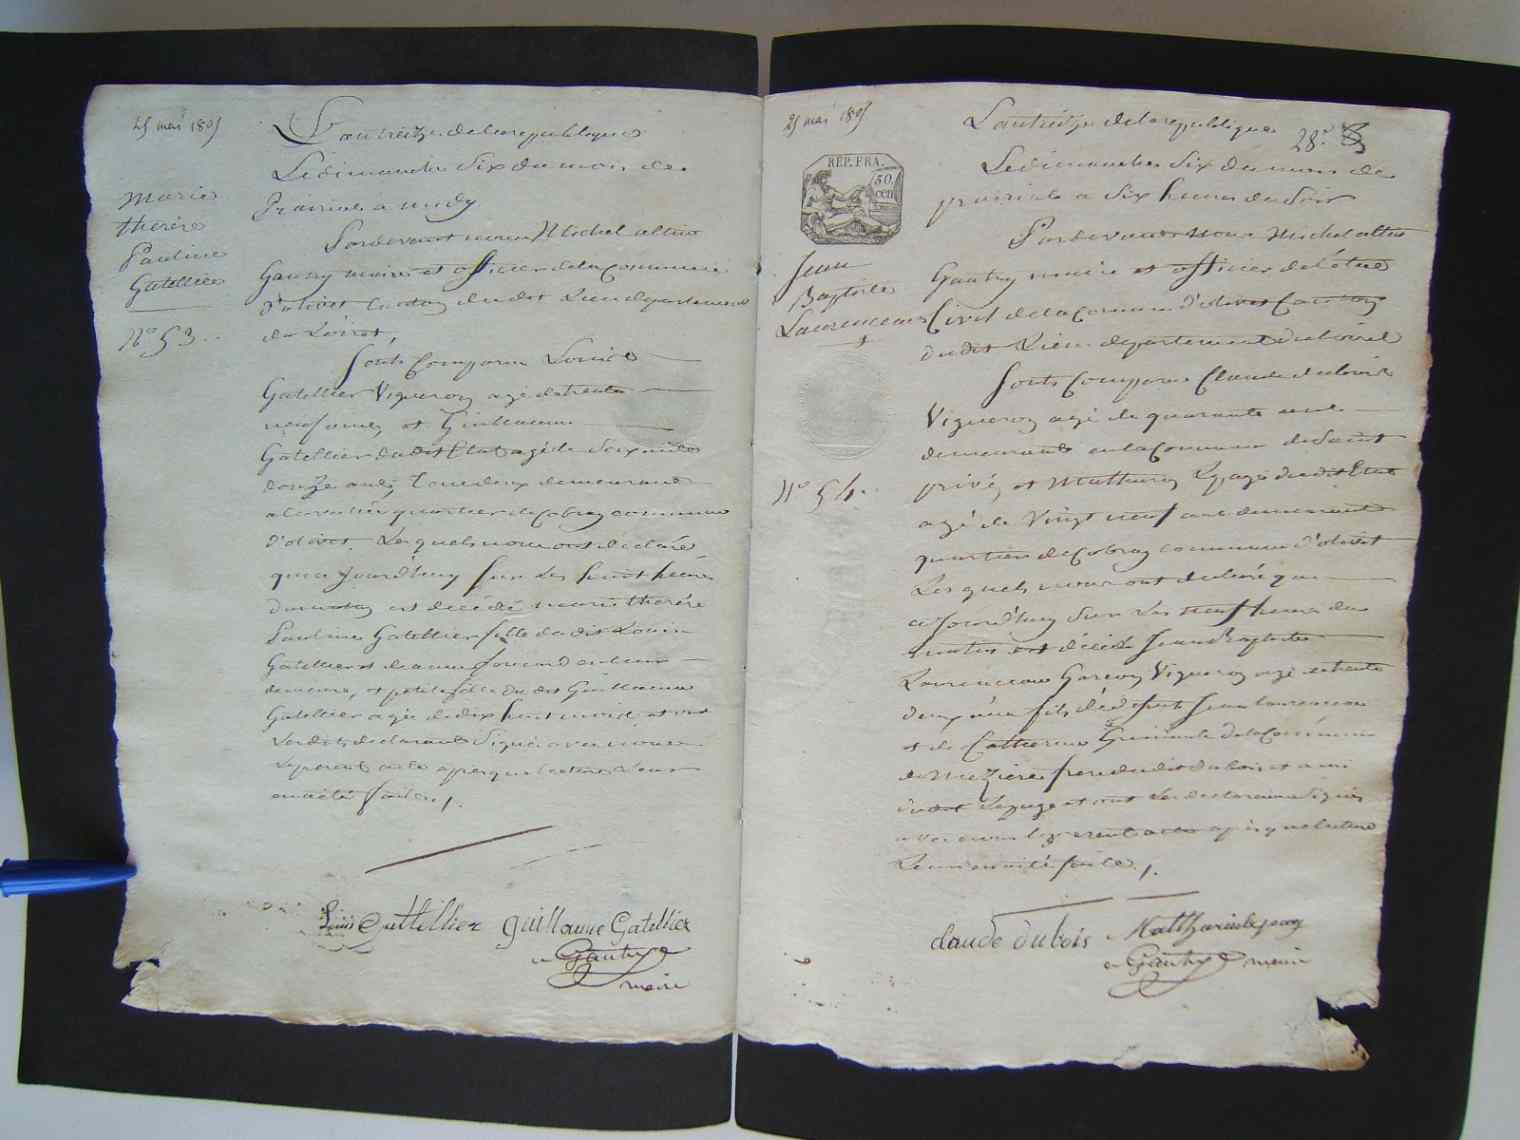 25 mai 1805
L'an treize de la republique
Le dimanche Six du mois de
Prairial a midy
Marie
therese
Pauline
Gatellier
N° 53.
Pardevant nous Michel altin
Gautry maire et officier de la Commune
d'olivet Canton dudit Lieu departement
du Loiret,
Sont Comparu Louis
Gatellier Vigneron agé de trente
neuf ans et Guillaume
Gatellier dudit Etat agé de Soixante
douze ans, tous deux demeurant
quartier de Cobray commune
d'olivet. Lesquels nous ont declaré
qu'a jourd'huy Sur Les huit heures
du matin est decedé marie therese
Pauline Gatellier fille dudit Louis
Gatellier et de
demeure, et petite fille du dit Guillaume
Gatellier agée de dix huit mois et ont
Lesdits declarants Signé avec nous
Le present acte apres que lecture Leur
en a été faite ./.
Louis Gattellier guillaume Gatellier
Gautry
maire
25 mai 1805
28.e
L'an treize de la republique
Le dimanche Six du mois de
prairial a Six heures du Soir
REP. FRA.
50
cen
Jean
Baptiste
Laurenceau
N° 54.
Pardevant Nous Michel altin
Gautry maire et officier de l'état
Civil de la Commune d'olivet Canton
dudit Lieu departement du Loiret
Sont Comparus Claude dubois
Vigneron agé de quarante ans
demeurant en la Commune de Saint
privé, et Mathurin Lepage dudit Etat
agé de Vingt neuf ans demeurant
quartier de Cobray commune d'olivet
Lesquels nous ont declaré que
ajourd'huy Sur Les neuf heures du
matin est décédé Jean Baptiste
Laurenceau Garçon Vigneron agé de trente
deux ans fils de defunt Jean laurenceau
et de Catherine de la Commune
de Mezieres frere dudit dubois et ami
dudit Lepage et ont Les declarans Signés
avec nous le present acte après que lecture
Leur en a été faite ./.
claude dubois Matthurin lepage
Gautry maire